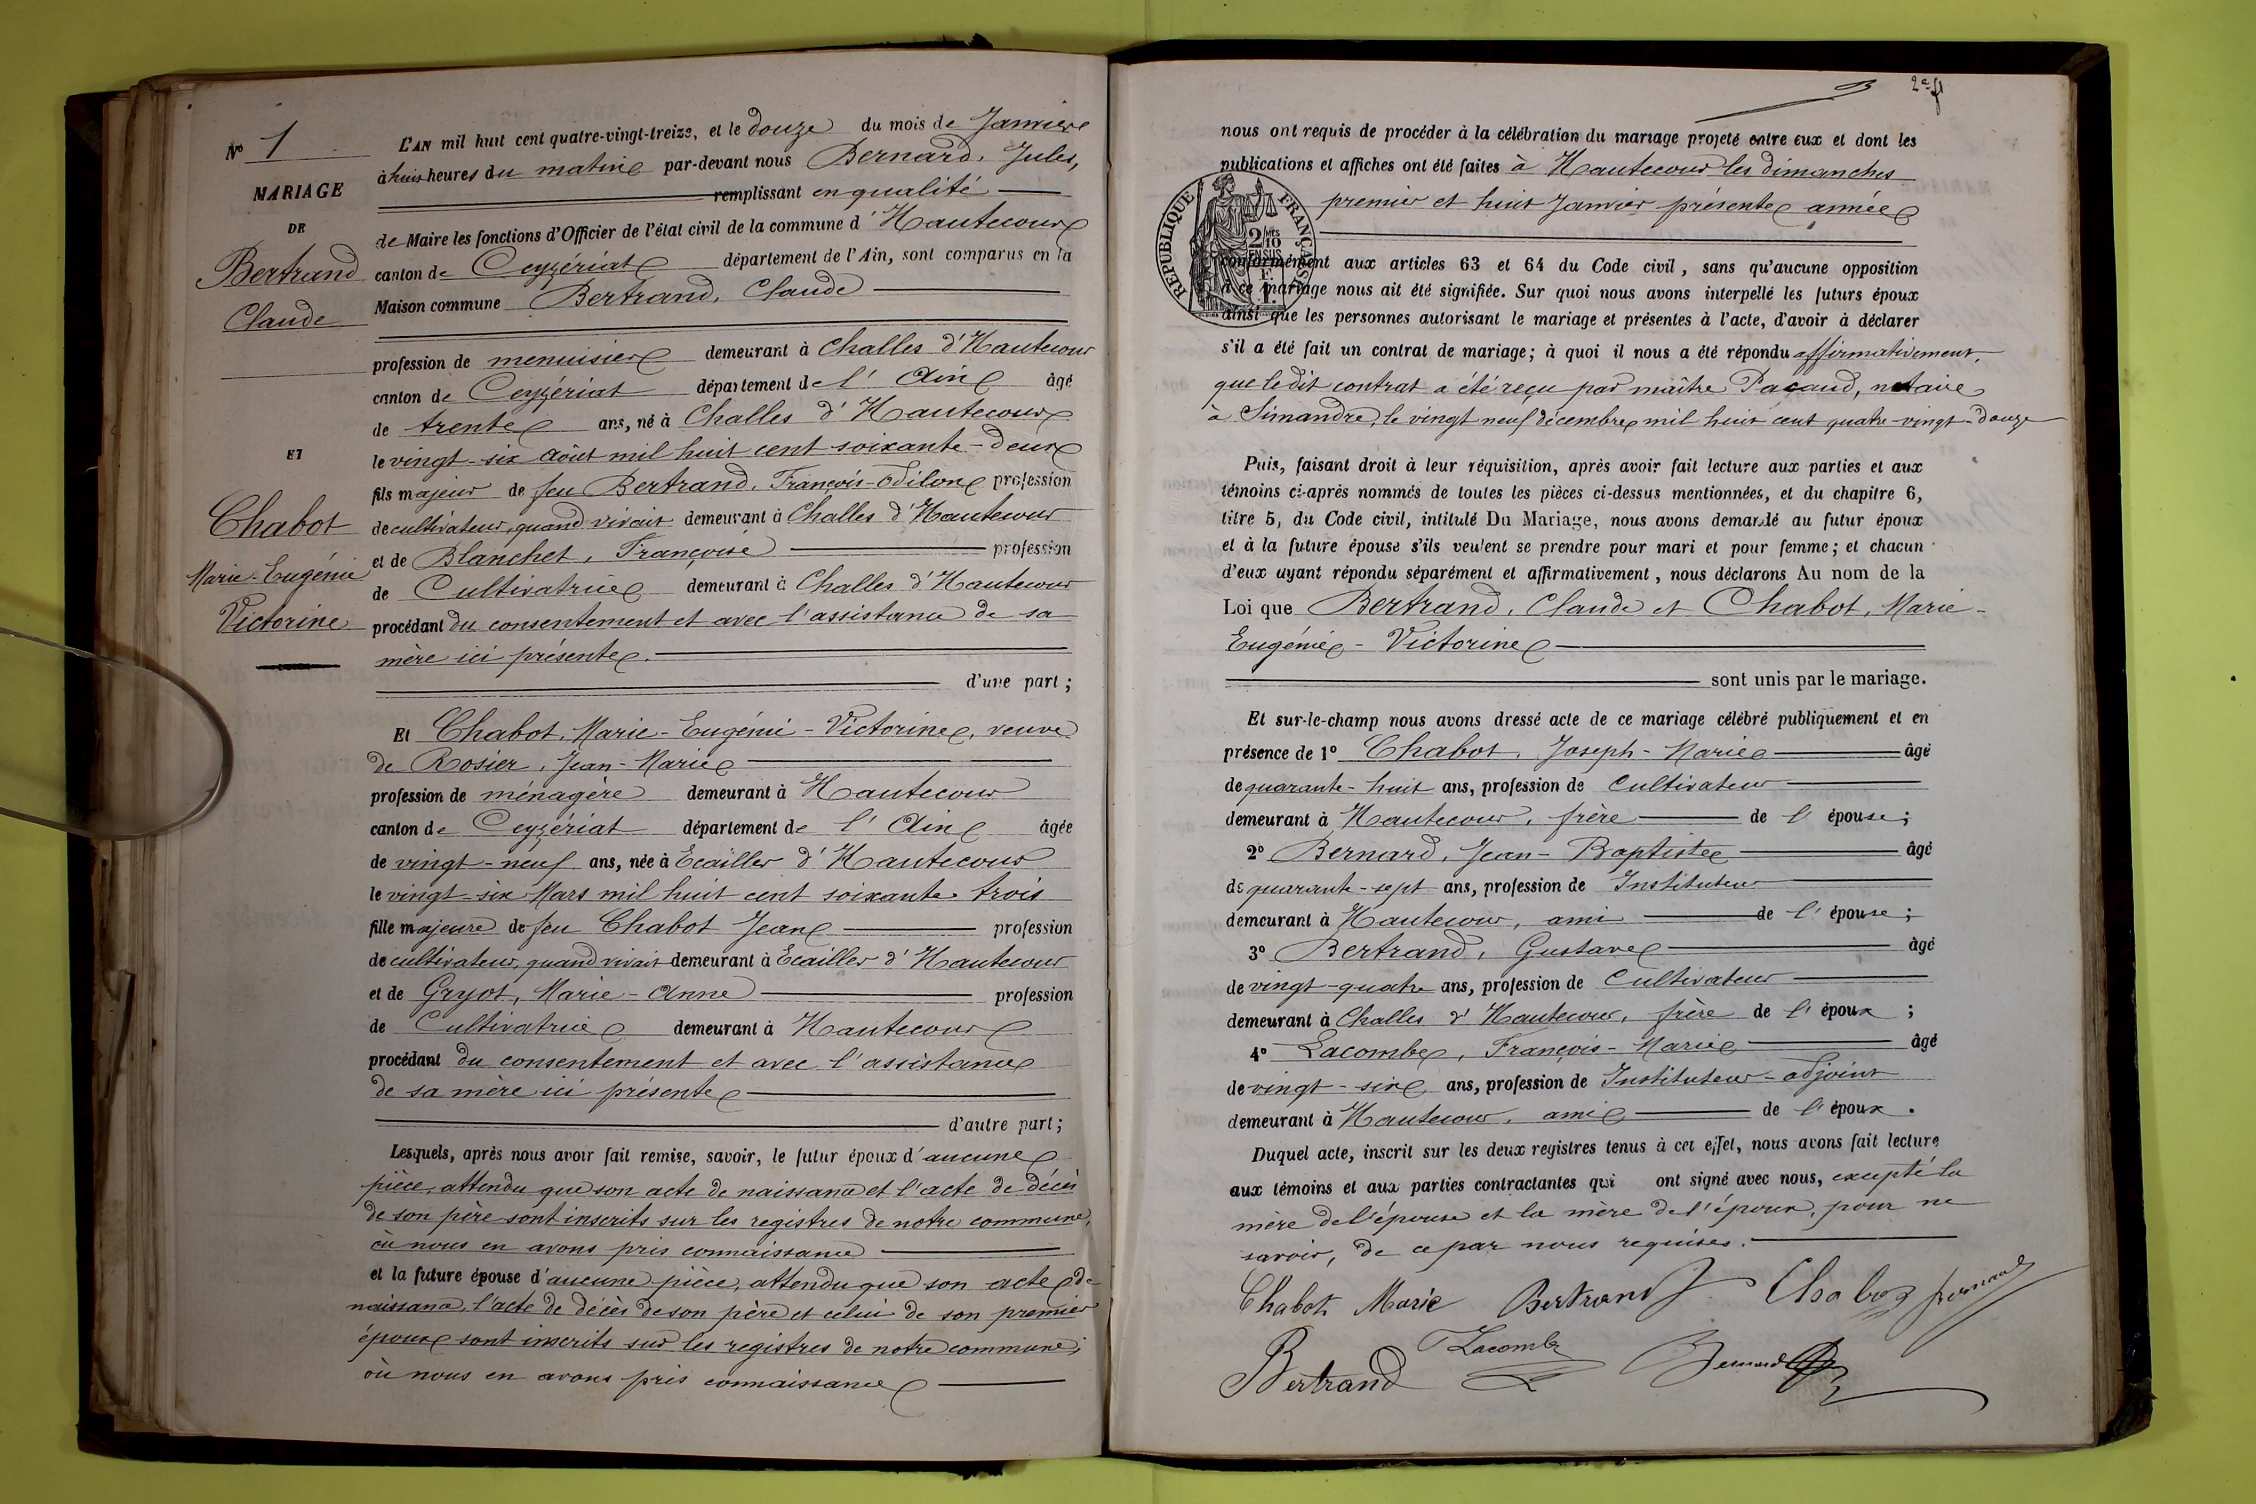 Nº 1
MARIAGE
DE
Bertrand
Claude
ET
Chabot
Marie-Eugénie
Victorine
L'AN mil huit cent quatre-vingt-treize, et le douze du mois de Janvier
à huit heures du matin par-devant nous Bernard, Jules,
remplissant en qualité
de Maire les fonctions d'Officier de l'état civil de la commune d'Hautecour
canton de Ceyzériat département de l'Ain, sont comparus en la
Maison commune Bertrand, Claude
profession de menuisier demeurant à Challes d'Hautecour
canton de Ceyzériat département de l'Ain âgé
de trente ans, né à Challes d'Hautecour
le vingt-six août mil huit cent soixante-deux
fils majeur de feu Bertrand, François-Odilon profession
de cultivateur, quand vivait demeurant à Challes d'Hautecour
et de Blanchet, Françoise profession
de Cultivatrice demeurant à Challes d'Hautecour
procédant du consentement et avec l'assistance de sa
mère ici présente.
d'une part;
Et Chabot, Marie-Eugénie-Victorine, veuve
de Rosier, Jean-Marie
profession de ménagère demeurant à Hautecour
canton de Ceyzériat département de l'Ain âgée
de vingt-neuf ans, née à Ecailles d'Hautecour
le vingt-six Mars mil huit cent soixante-trois
fille majeure de feu Chabot Jean profession
de cultivateur, quand vivait demeurant à Ecailles d'Hautecour
et de Gryot, Marie-Anne profession
de Cultivatrice demeurant à Hautecour
procédant du consentement et avec l'assistance
de sa mère ici présente
d'autre part;
Lesquels, après nous avoir fait remise, savoir, le futur époux d'aucune
pièce, attendu que son acte de naissance et l'acte de décès
de son père sont inscrits sur les registres de notre commune,
où nous en avons pris connaissance
et la future épouse d'aucune pièce, attendu que son acte de
naissance, l'acte de décès de son père et celui de son premier
époux sont inscrits sur les registres de notre commune,
où nous en avons pris connaissance
2e
nous ont requis de procéder à la célébration du mariage projeté entre eux et dont les
publications et affiches ont été faites à Hautecour les dimanches
premier et huit Janvier présente année
RÉPUBLIQUE FRANÇAISE
2/10 EN SUS
conformément aux articles 63 et 64 du Code civil, sans qu'aucune opposition
à ce mariage nous ait été signifiée. Sur quoi nous avons interpellé les futurs époux
ainsi que les personnes autorisant le mariage et présentes à l'acte, d'avoir à déclarer
s'il a été fait un contrat de mariage; à quoi il nous a été répondu affirmativement,
que le dit contrat a été reçu par maître Pacaud, notaire
à Simandre, le vingt neuf décembre mil huit cent quatre-vingt-douze
Puis, faisant droit à leur réquisition, après avoir fait lecture aux parties et aux
témoins ci-après nommés de toutes les pièces ci-dessus mentionnées, et du chapitre 6,
titre 5, du Code civil, intitulé Du Mariage, nous avons demandé au futur époux
et à la future épouse s'ils veulent se prendre pour mari et pour femme; et chacun
d'eux ayant répondu séparément et affirmativement, nous déclarons Au nom de la
Loi que Bertrand, Claude et Chabot, Marie-
Eugénie-Victorine
sont unis par le mariage.
Et sur-le-champ nous avons dressé acte de ce mariage célébré publiquement et en
présence de 1º Chabot, Joseph-Marie âgé
de quarante-huit ans, profession de Cultivateur
demeurant à Hautecour, frère de l'épouse;
2º Bernard, Jean-Baptiste âgé
de quarante-sept ans, profession de Instituteur
demeurant à Hautecour, ami de l'épouse;
3º Bertrand, Gustave âgé
de vingt-quatre ans, profession de Cultivateur
demeurant à Challes d'Hautecour, frère de l'époux;
4º Lacombe, François-Marie âgé
de vingt-six ans, profession de Instituteur-adjoint
demeurant à Hautecour, ami de l'époux.
Duquel acte, inscrit sur les deux registres tenus à cet effet, nous avons fait lecture
aux témoins et aux parties contractantes qui ont signé avec nous, excepté la
mère de l'épouse et la mère de l'époux, pour ne
savoir, de ce par nous requises.
Chabot Marie Bertrand Chabot
Bertrand Lacombe Bernard